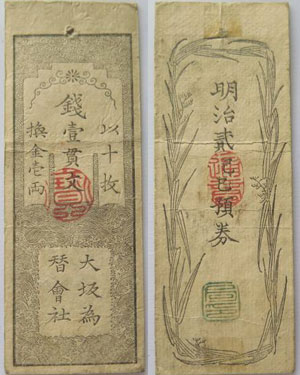 錢壹貫文
以十枚
換金壱両
大坂為
替會社
明治貳己巳預券